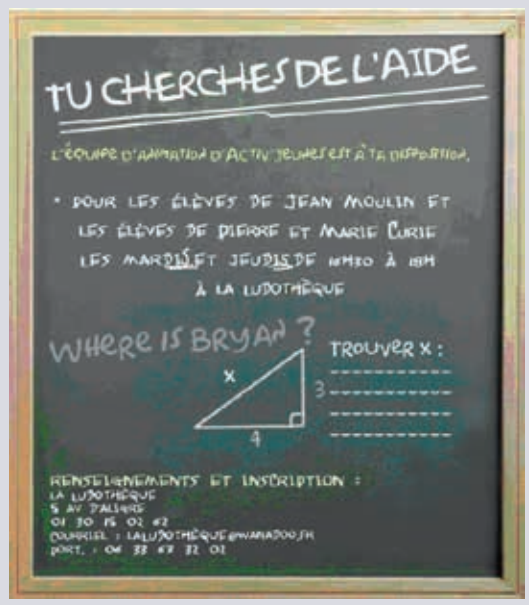 TU CHERCHES DE L'AIDE
L'ÉQUIPE D'ANIMATION D'ACTIV JEUNES EST À TA DISPOSITION,
• POUR LES ÉLÈVES DE JEAN MOULIN ET
LES ÉLÈVES DE PIERRE ET MARIE CURIE
LES MARDIS ET JEUDIS DE 16H30 À 18H
À LA LUDOTHÈQUE
WHERE IS BRYAN ?
TROUVER X :
X
3
4
RENSEIGNEMENTS ET INSCRIPTION :
LA LUDOTHÈQUE
5 AV D'ALIGRE
01 30 15 02 62
COURRIEL : LALUDOTHÈQUE@WANADOO.FR
PORT. : 06 33 67 32 02